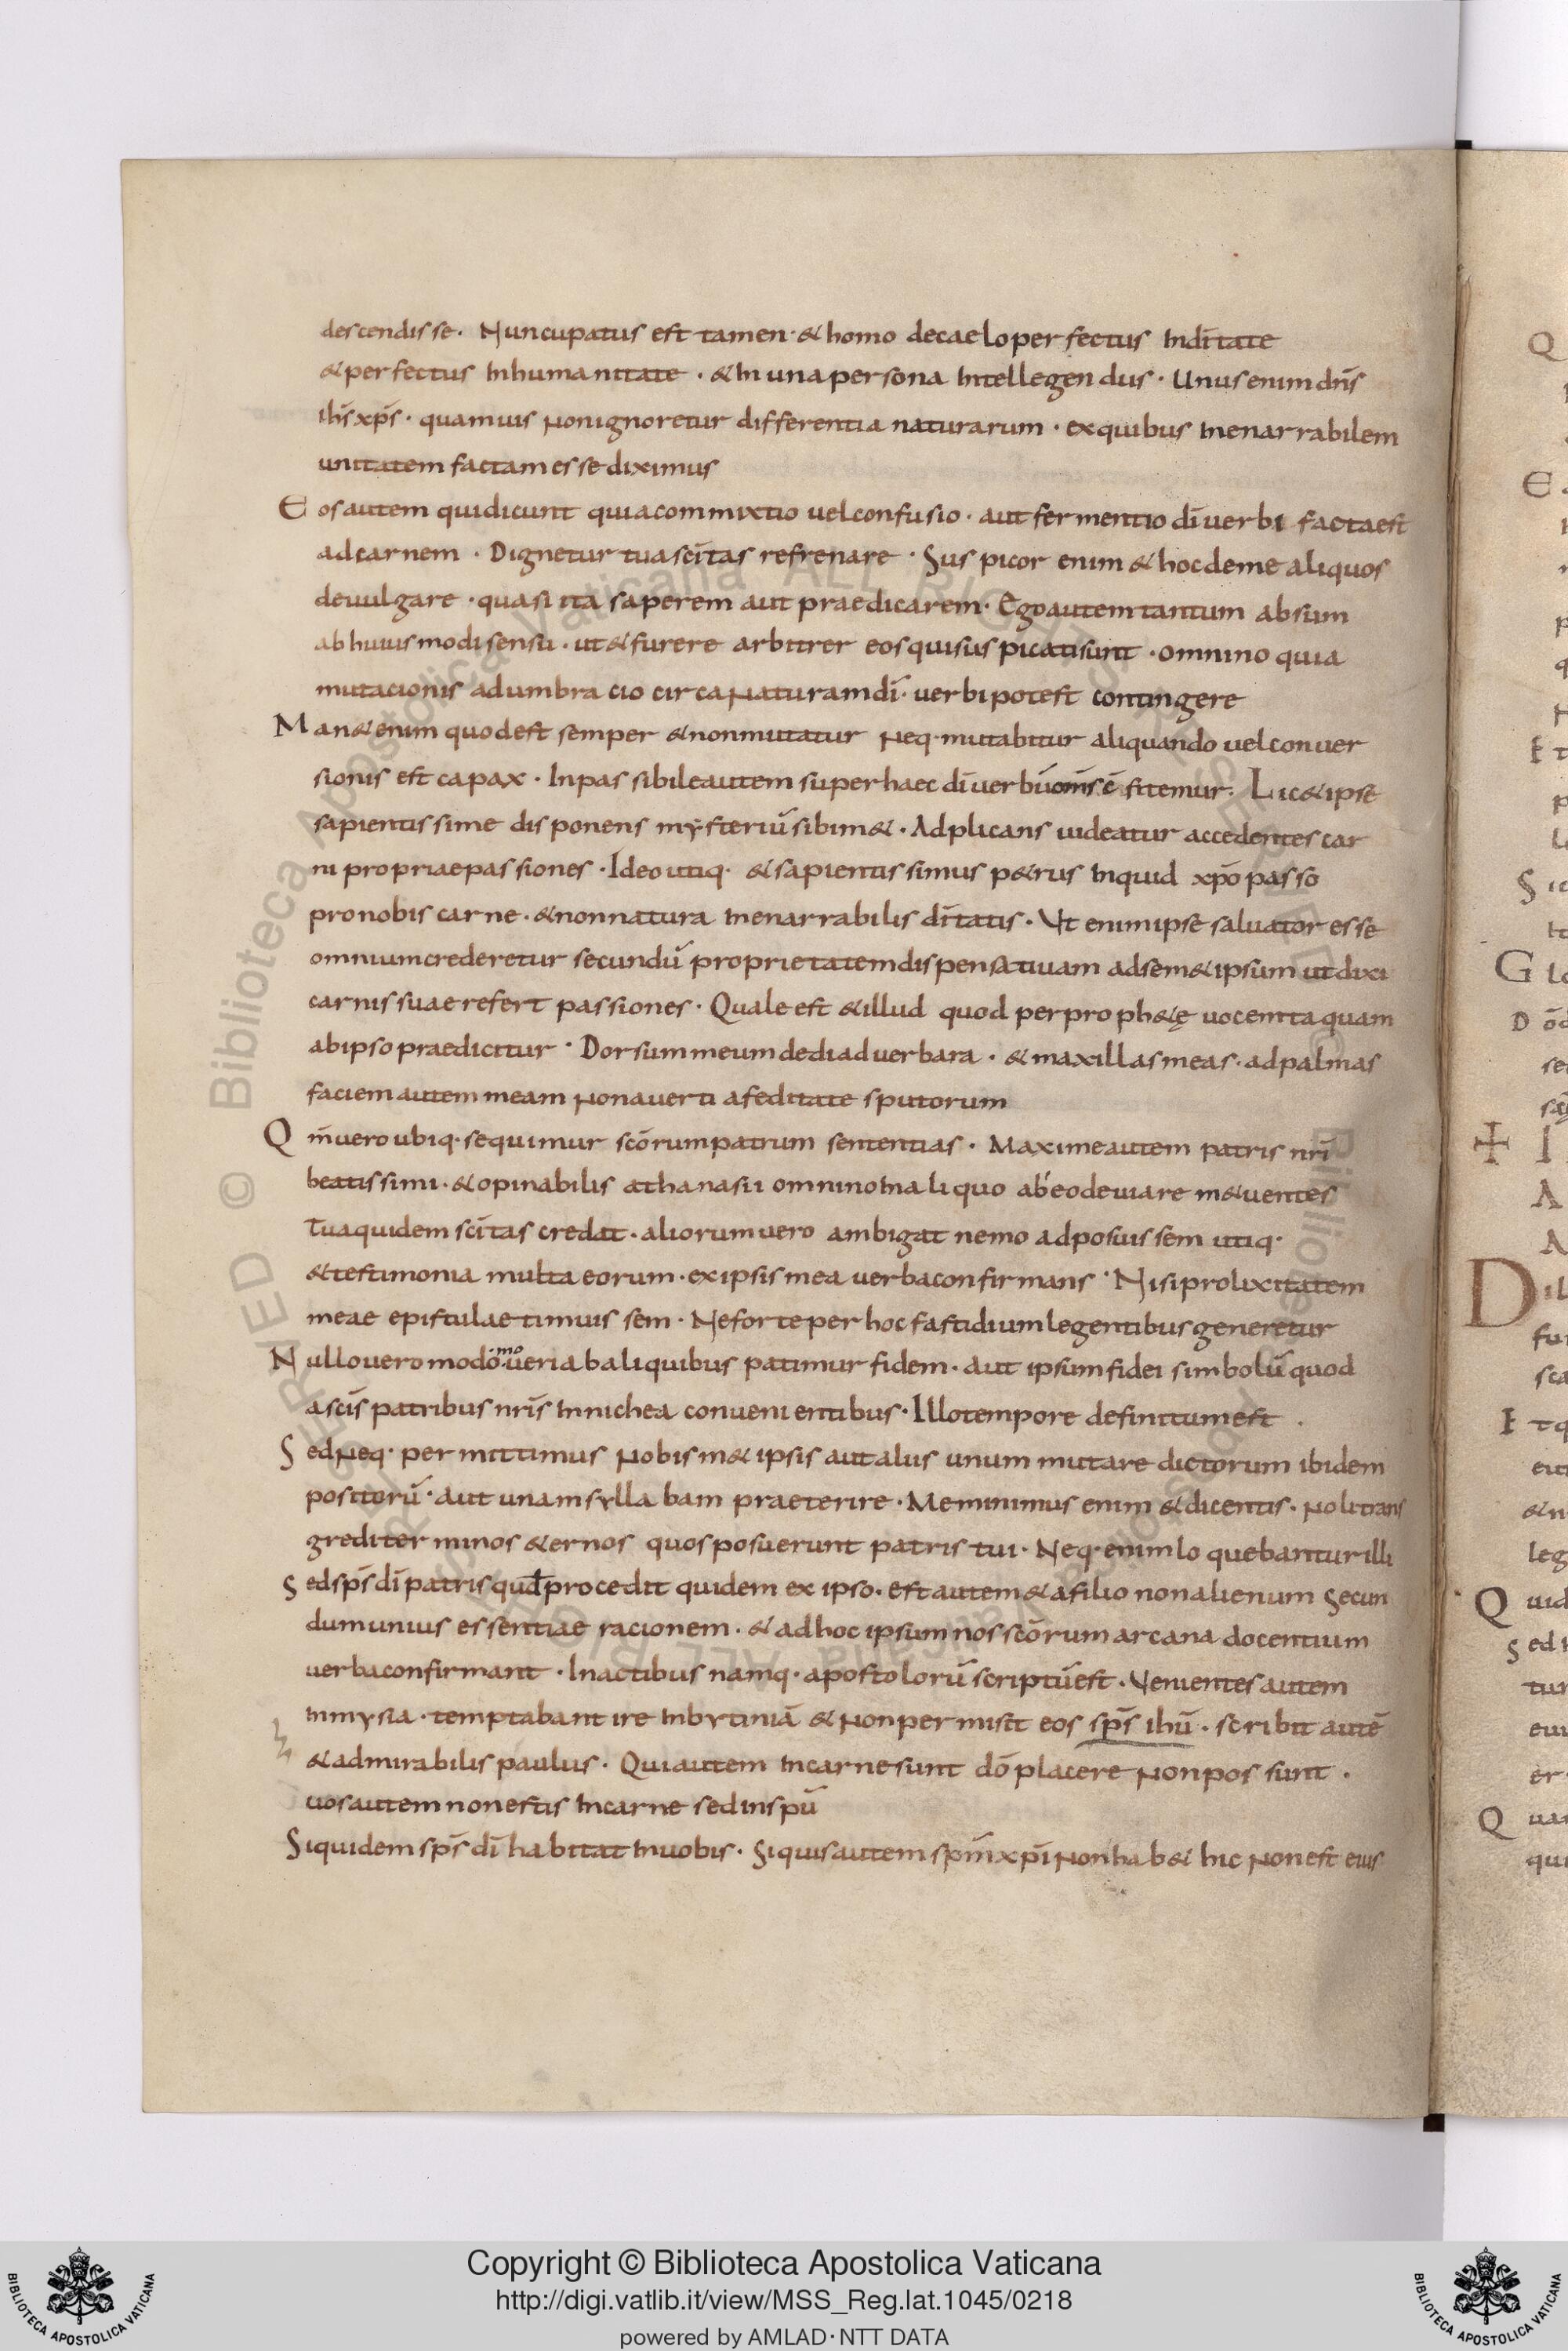 descendisse· Nuncupatus est tamen· & homo decaelo perfectus In dītate
& perfectus In humanitate · & In una persona Intellegendus · Unus enim dn̄s
ih̄s xp̄s · quamuis Non ignoretur differentia naturarum · exquibus Inenarrabilem
unitatem factam esse diximus
Eos autem qui dicunt quia commixtio uel confusio · aut fermentio dī uerbi facta est
ad carnem · Dignetur tua scītas refrenare · Suspicor enim & hoc deme aliquos
deuulgare · quasi ita saperem aut praedicarem· Ego autem tantum absum
ab huiusmodi sensu · ut & furere arbitrer eos qui suspicati sunt · omnino quia
mutacionis adumbracio circa Naturam dī· uerbi potest contingere
Man& enim quod est semper & non mutatur Neq· mutabitur aliquando uel conuer
sionis est capax · Inpassibile autem super haec dī uerbū om̄s ē fitemur· Lic& ipse
sapientissime disponens mysteriū sibim& · Adplicans uideatur accedentes car
ni propriae passiones · Ideo utiq· & sapientissimus p&rus Inquid xp̄o passo
pro nobis carne · & non natura Inenarrabilis dītatis · Ut enim ipse saluator esse
omnium crederetur secundū proprietatem dispensatiuam ad sem& ipsum ut dixi
carnis suae refert passiones · Quale est & illud quod per proph&ę uocem ita quam
ab ipso praedicitur · Dorsum meum dedi ad uerbara · & maxillas meas · ad palmas
faciem autem meam Non auerti a feditate sputorum
Qm̄ uero ubiq· sequimur scōrum patrum sententias · Maxime autem patris nr̄i
beatissimi · & opinabilis athanasii omnino In aliquo ab eo deuiare m&uentes
Tua quidem scītas credat · aliorum uero ambigat nemo adposuissem utiq·
& testimonia multa eorum · ex ipsis mea uerba confirmans · Nisi prolixitatem
meae epistulae timuissem · Ne forte per hoc fastidium legentibus generetur
Nullo uero modo moueri ab aliquibus patimur fidem · aut ipsum fidei simbolū quod
a scīs patribus nr̄is In nichea conuenientibus · Illo tempore definitum est ·
Sed Neq· permittimus Nobis m& ipsis aut aliis unum mutare dictorum ibidem
positorū · aut unam syllabam praeterire · Meminimus enim & dicentis · Noli trans
gredi terminos &ernos quos posuerunt patris tui · Neq· enim loquebantur illi
Sed sp̄s dī patris qud procedit quidem ex ipso · est autem & a filio non alienum Secun
dum unius essentiae racionem · & ad hoc ipsum nos scōrum arcana docentium
uerba confirmant · In actibus namq· apostolorū scriptū est · Uenientes autem
In mysia · temptabant ire In bytiniā & Non permisit eos sp̄s ihū · scribit autē
& admirabilis paulus · Qui autem In carne sunt dō placere Non possunt ·
uos autem non estis In carne sed in spū
Siquidem sp̄s dī habitat In uobis · Si quis autem spm̄ xp̄i Non hab& hic Non est eius
Copyright © Biblioteca Apostolica Vaticana
http://digi.vatlib.it/view/MSS_Reg.lat.1045/0218
powered by AMLAD·NTT DATA